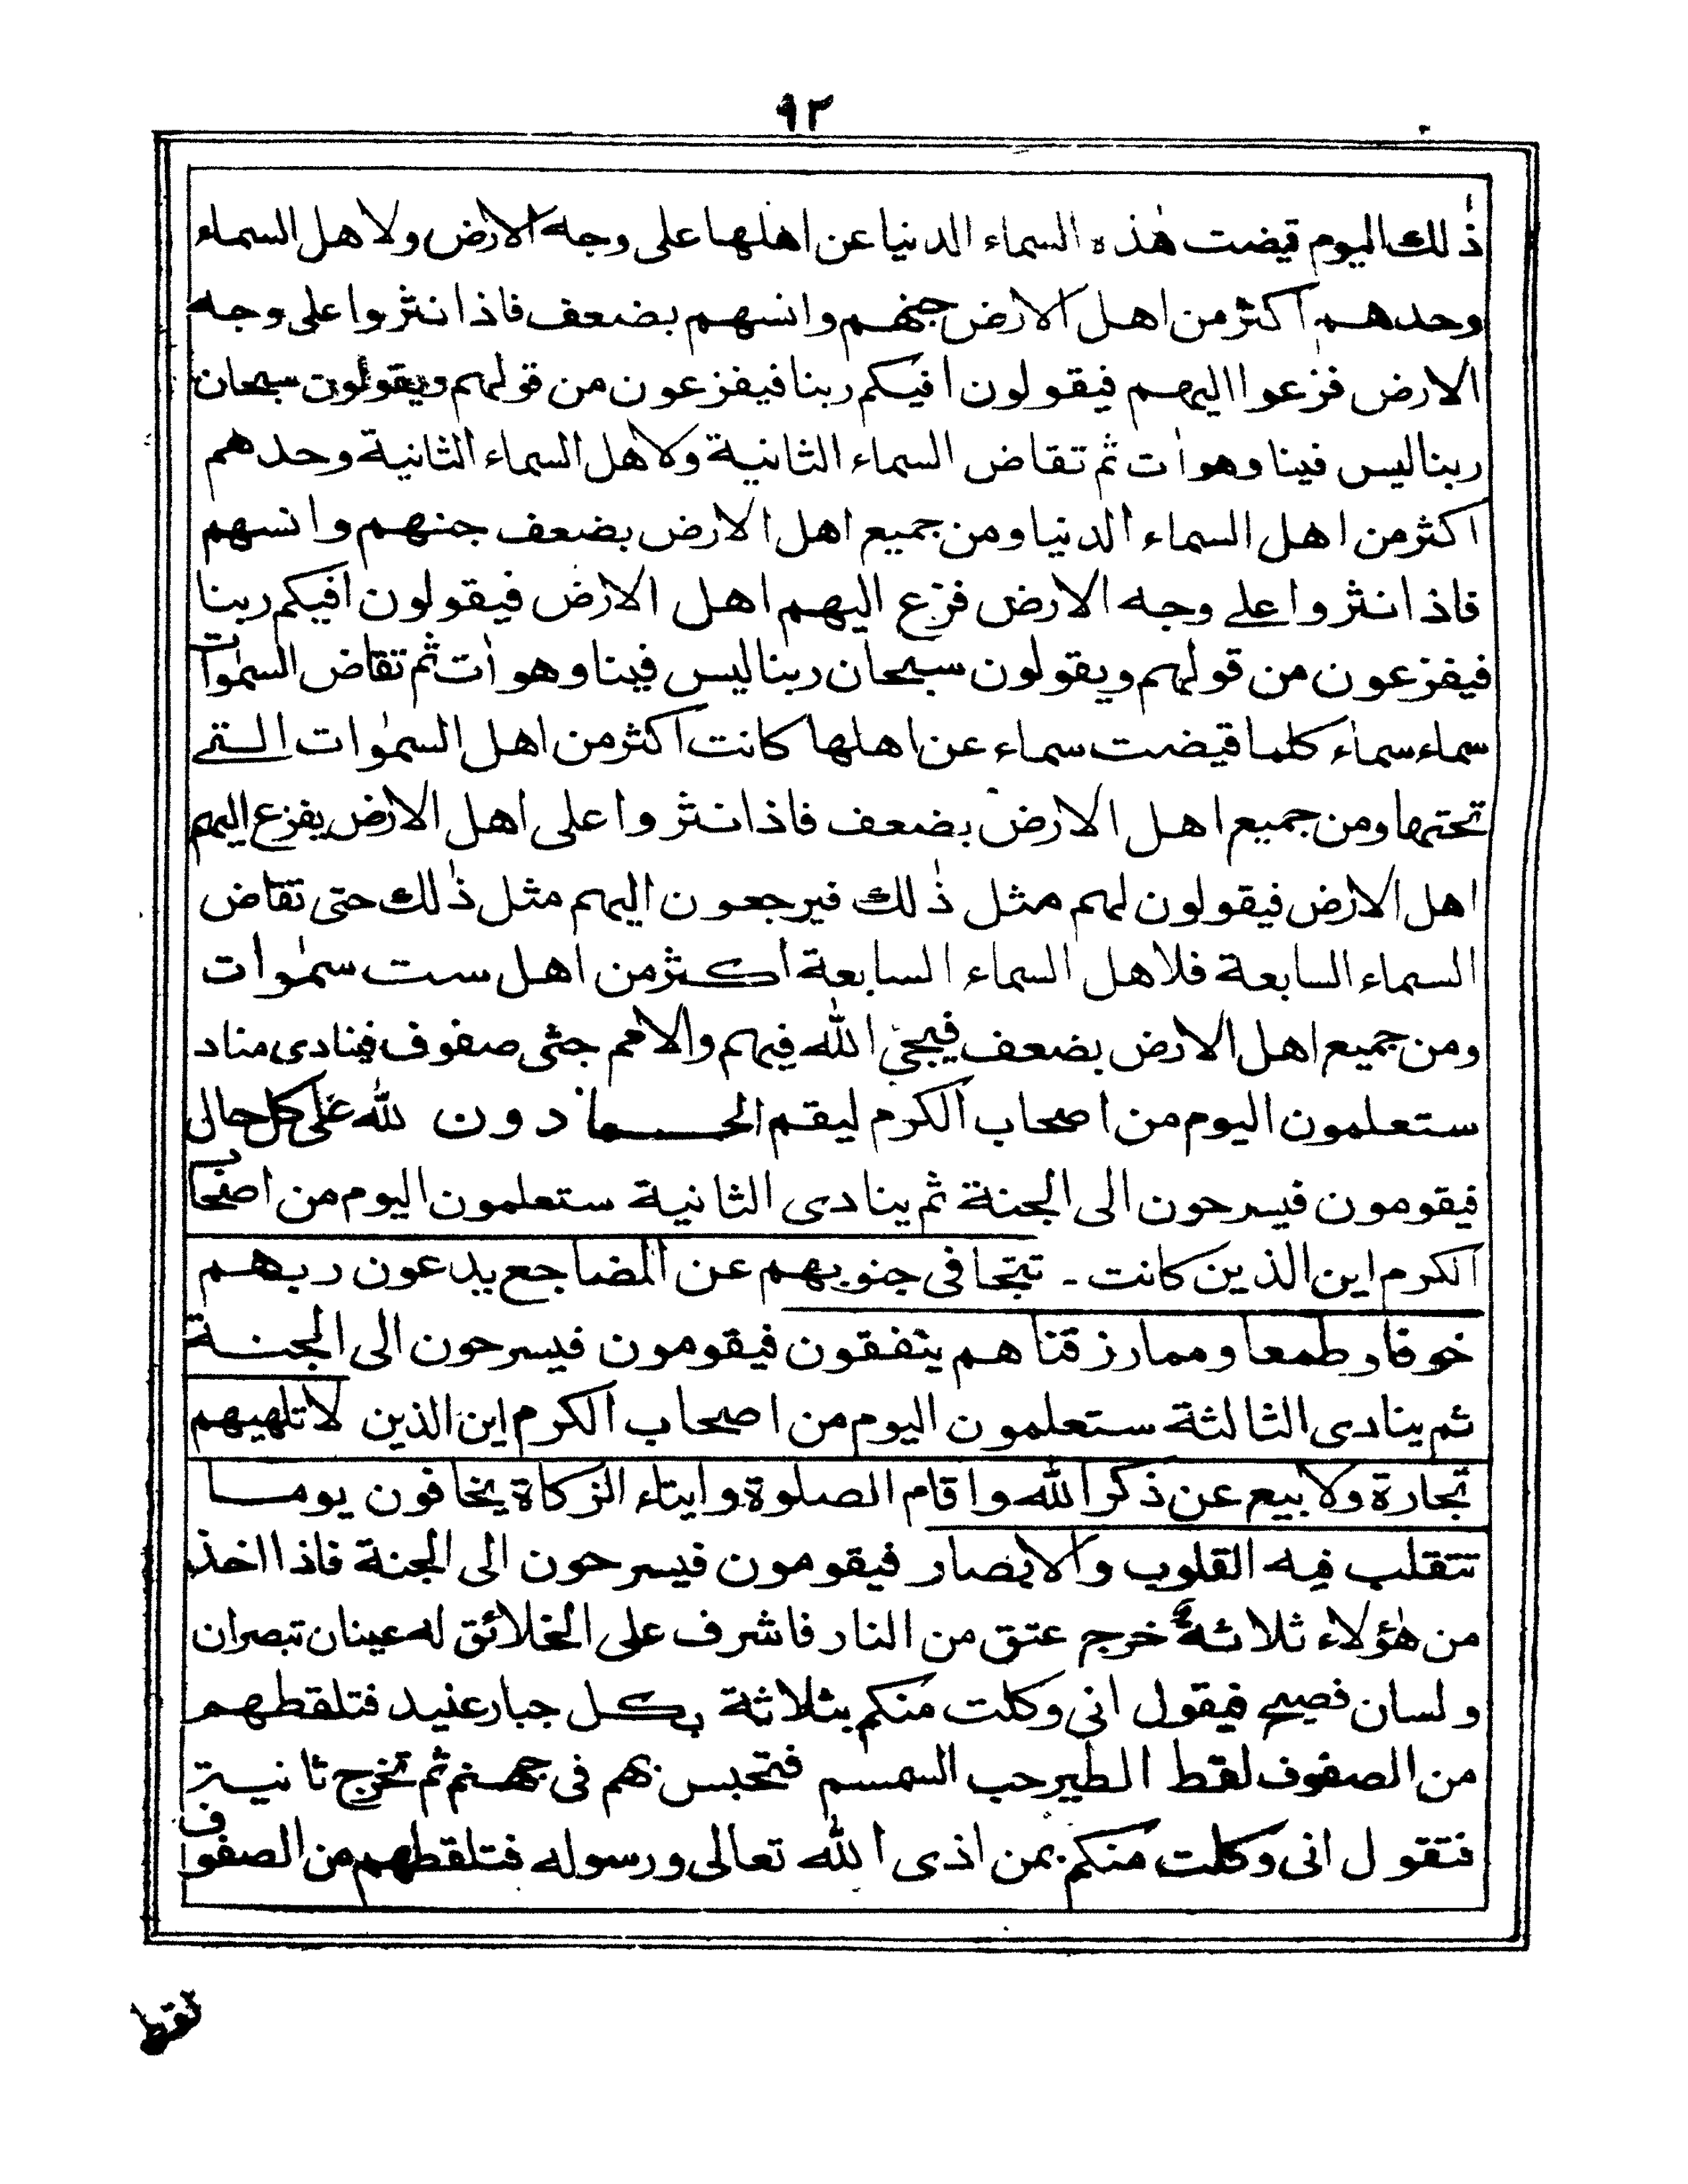 ٩٢
ذٰلك اليوم قيضت هٰذه السماء الدنيا عن اهلها على وجه الارض ولاهل السماء
وحدهم اكثر من اهل الارض جنهم وانسهم بضعف فاذا نثروا على وجه
الارض فزعوا اليهم فيقولون افيكم ربنا فيفزعون من قولهم ويقولون سبحان
ربنا ليس فينا وهو اٰت ثم تقاض السماء الثانية ولاهل السماء الثانية وحدهم
اكثر من اهل السماء الدنيا ومن جميع اهل الارض بضعف جنهم وانسهم
فاذا نثروا على وجه الارض فزع اليهم اهل الارض فيقولون افيكم ربنا
فيفزعون من قولهم ويقولون سبحان ربنا ليس فينا وهو اٰت ثم تقاض السمٰوات
سماء سماء كلما قيضت سماء عن اهلها كانت اكثر من اهل السمٰوات التى
تحتها ومن جميع اهل الارض بضعف فاذا نثروا على اهل الارض يفزع اليهم
اهل الارض فيقولون لهم مثل ذٰلك فيرجعون اليهم مثل ذٰلك حتى تقاض
السماء السابعة فلاهل السماء السابعة اكثر من اهل ست سمٰوات
ومن جميع اهل الارض بضعف فيجئ الله فيهم والامم جثى صفوف فينادى مناد
ستعلمون اليوم من اصحاب الكرم ليقم الحمادون لله على كل حال
فيقومون فيسرحون الى الجنة ثم ينادى الثانية ستعلمون اليوم من اصحاب
الكرم اين الذين كانت ـ تتجافى جنوبهم عن المضاجع يدعون ربهم
خوفا وطمعا ومما رزقناهم ينفقون فيقومون فيسرحون الى الجنة
ثم ينادى الثالثة ستعلمون اليوم من اصحاب الكرم اين الذين لا تلهيهم
تجارة ولا بيع عن ذكر الله واقام الصلوة وايتاء الزكاة يخافون يوما
تتقلب فيه القلوب والابصار فيقومون فيسرحون الى الجنة فاذا اخذ
من هٰؤلاء ثلاثة خرج عتق من النار فاشرف على الخلائق له عينان تبصران
ولسان فصيح فيقول انى وكلت منكم بثلاثة بكل جبار عنيد فتلقطهم
من الصفوف لقط الطير حب السمسم فتحبس بهم فى جهنم ثم تخرج ثانية
فتقول انى وكلت منكم بمن اذى الله تعالى ورسوله فتلقطهم من الصفوف
لقط